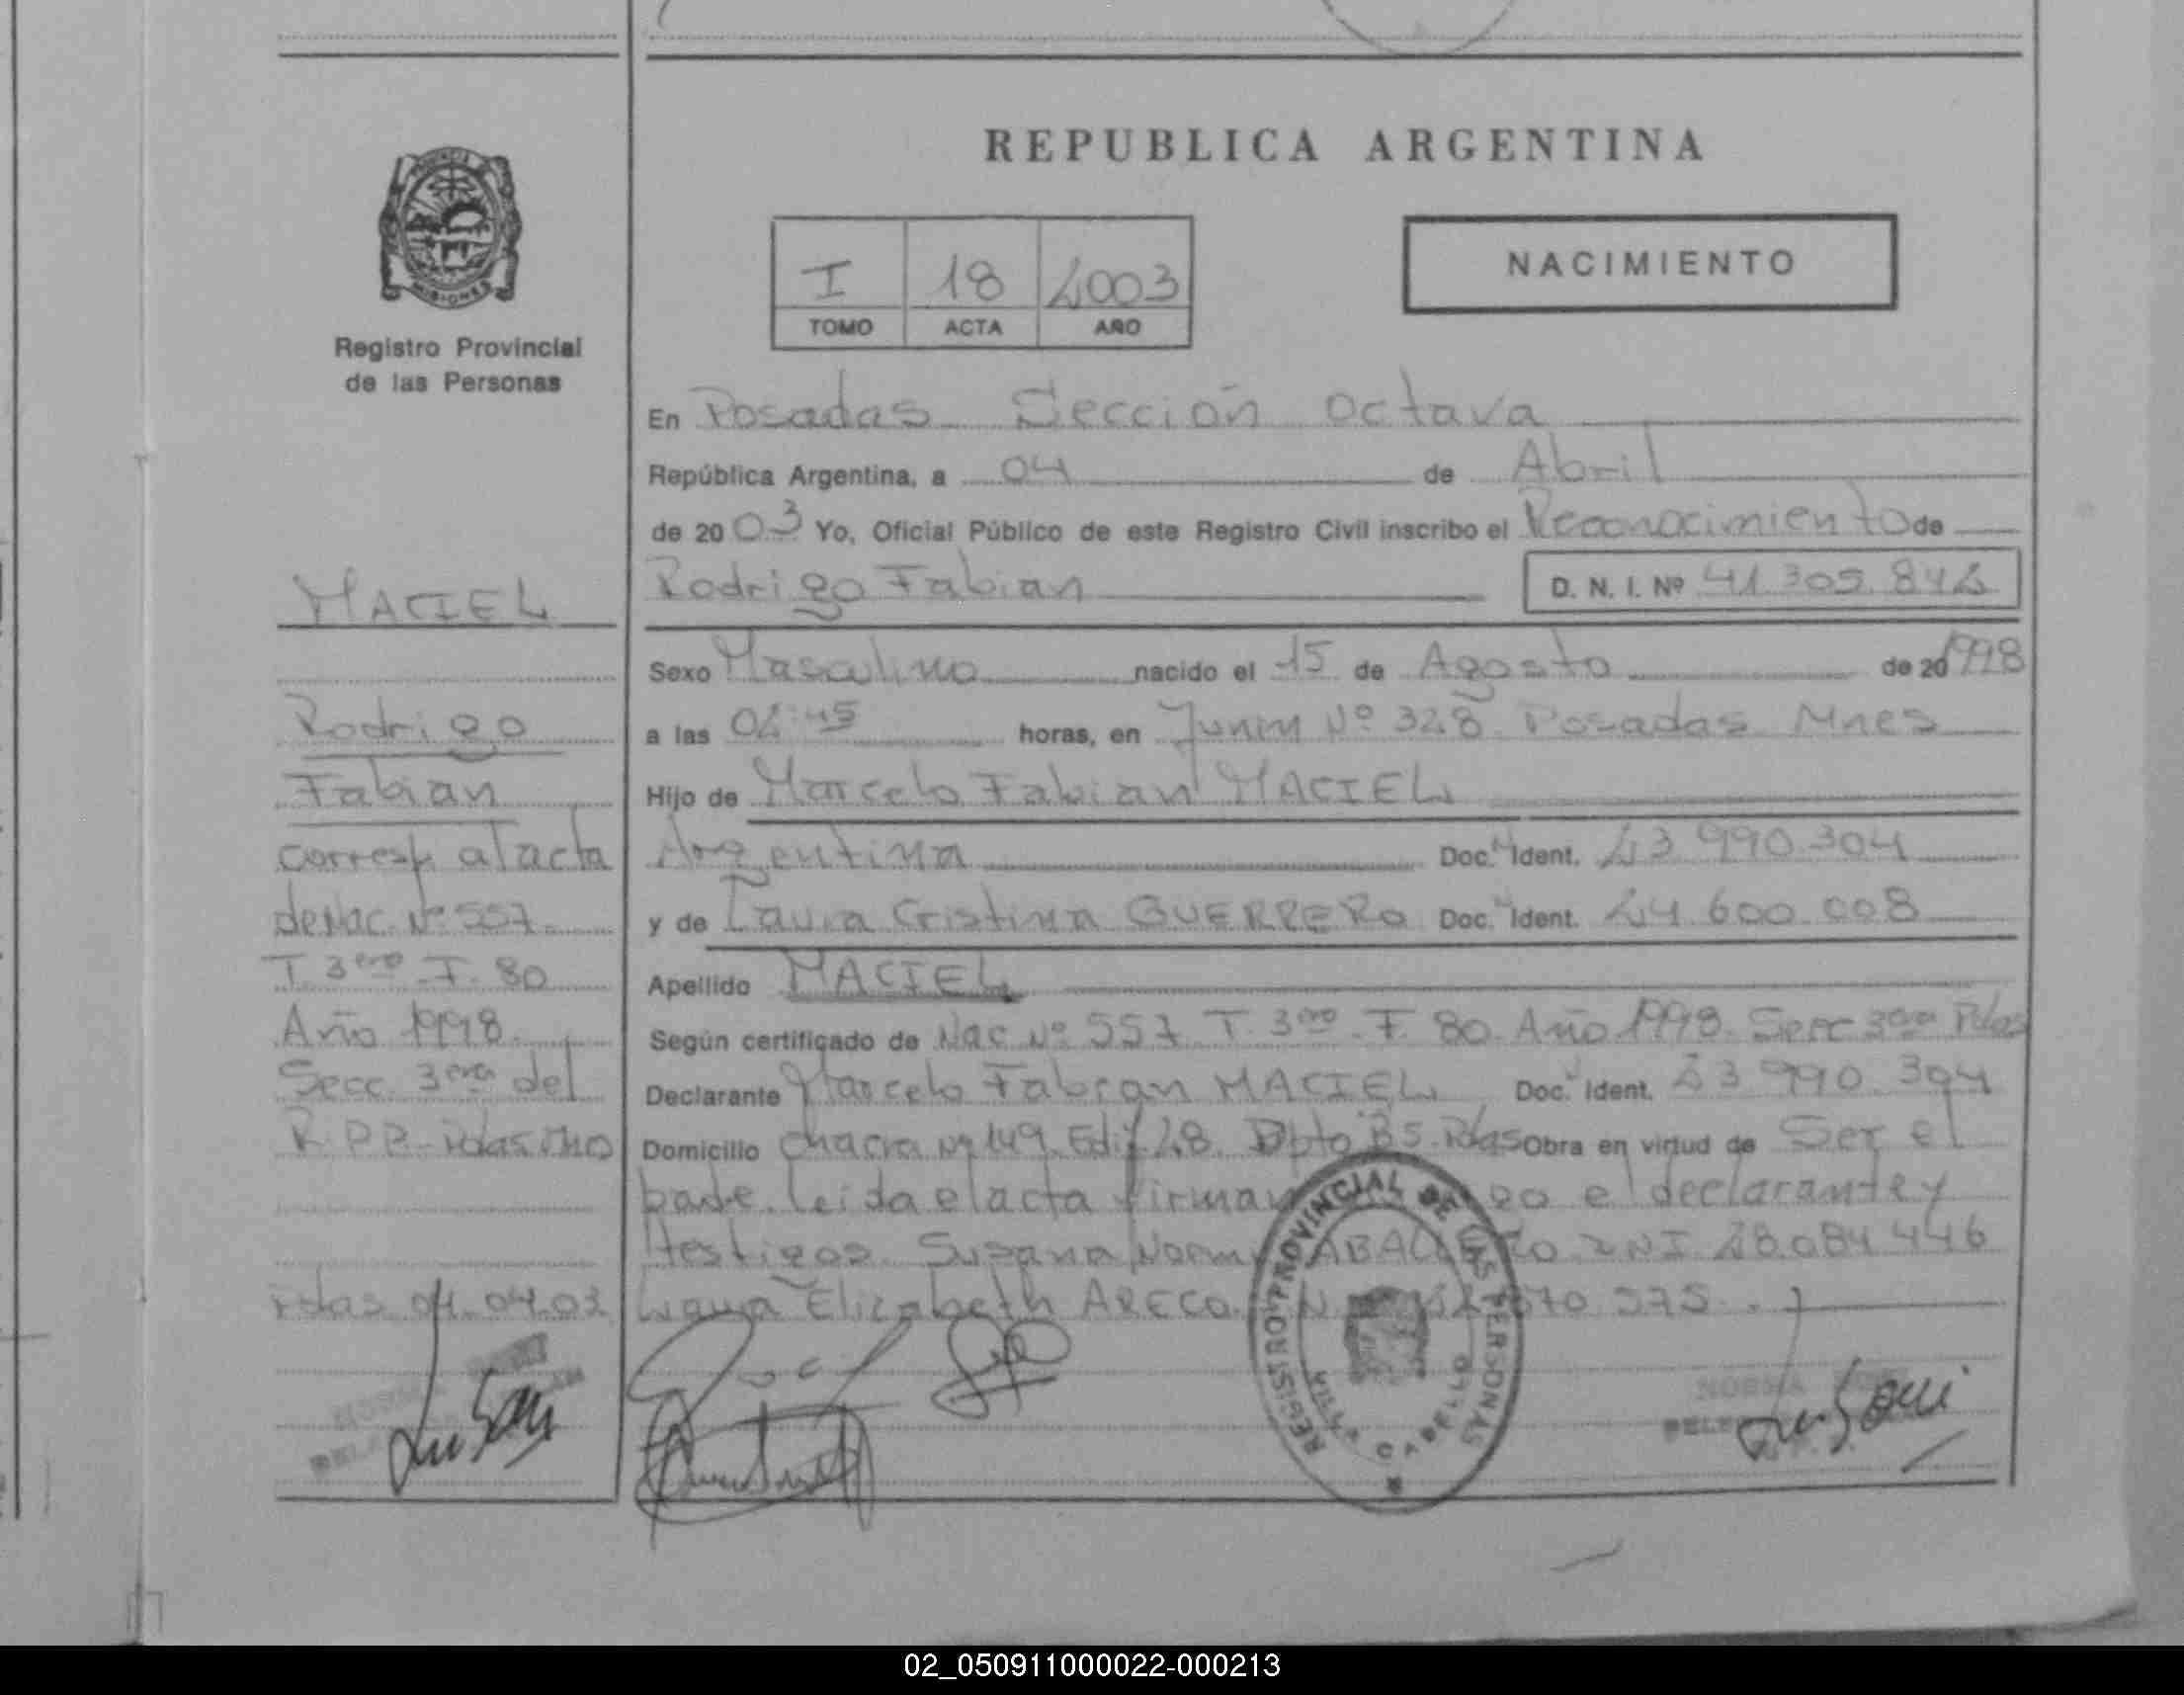 REPUBLICA ARGENTINA
I 18 2003
TOMO ACTA AÑO
NACIMIENTO
MISIONES
Registro Provincial
de las Personas
MACIEL
Rodrigo
Fabian
corresp al acta
de Nac. Nº 557
T. 3ero F. 80
Año 1998
Secc. 3era del
R.P.P.
04.04.03
En Posadas Sección Octava
República Argentina, a 04 de Abril
de 2003 Yo, Oficial Público de este Registro Civil inscribo el Reconocimiento de
Rodrigo Fabian D. N. I. Nº 41.305.842
Sexo Masculino nacido el 15 de Agosto de 20 1998
a las 02:45 horas, en Junin Nº 328 Posadas Mnes
Hijo de Marcelo Fabian MACIEL
Argentina Doc. Ident. 23.990.304
y de Laura Cristina GUERRERO Doc. Ident. 24.600.008
Apellido MACIEL
Según certificado de Nac Nº 557 T. 3ero F. 80 Año 1998 Secc 3era Pdas
Declarante Marcelo Fabian MACIEL Doc. Ident. 23.990.304
Domicilio Chacra Nº 149 Edif 28 Dpto B5 Pdas Obra en virtud de Ser el
padre. Leida el acta firman el declarante y
testigos. Susana DNI 28.084.446
Elizabeth ARECO
REGISTRO PROVINCIAL DE LAS PERSONAS
VILLA CABELLO
NORMA
02_050911000022-000213